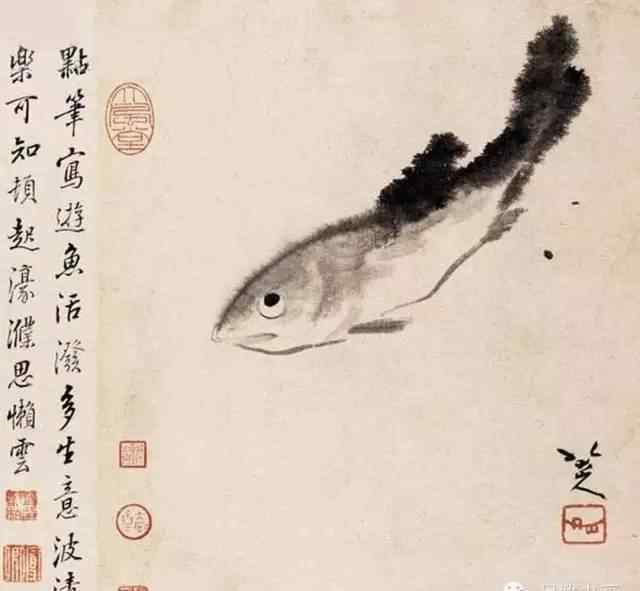 點筆寫遊魚活潑多生意波
樂可知頓起濠濮思懶雲
八大